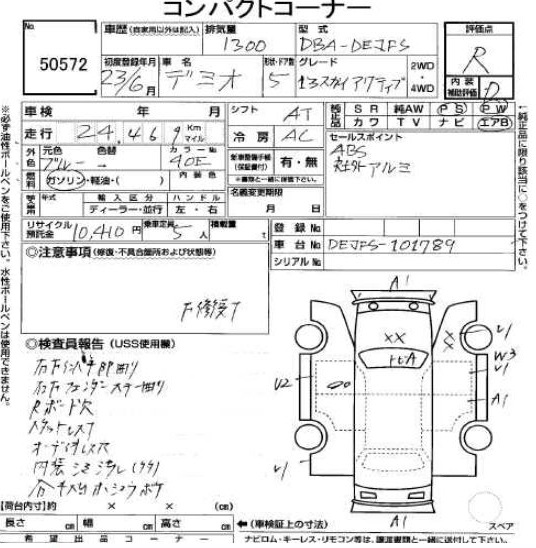 コンパクトコーナー
No.
50572
車歴(自家用以外は記入)
排気量
1300
型式
DBA-DEJFS
評価点
R
初度登録年月
23/6月
車名
デミオ
形状・ドア数
5
グレード
13スカイアクティブ
2WD
・
4WD
内装
補助評価
D
車検 年 月
シフト
AT
純正品
SR 純AW PS PW
カワ TV ナビ エアB
走行
24,469
Km
マイル
冷房
AC
セールスポイント
ABS
社外アルミ
外色
元色
ブルー
色替
→
カラーNo
40E
内装色
燃料
ガソリン・軽油・( )
新車整備手帳
(保証書付)
有・無
※書類と一緒に保管下さい。
名義変更期限
月 日
年式
輸入区分
ディーラー・並行
ハンドル
左・右
リサイクル
預託金
10,410円
乗車定員
5人
積載量
t
登録No
車台No
DEJFS-101789
シリアルNo
◎注意事項(修復・不具合箇所および状態等)
右修復了
◎検査員報告(USS使用欄)
Rボード穴
内張シミ汚レ
A1
XX
XX
U1
トビA
W3
U1
U2
A1
U1
A1
【荷台内寸】約 × × (cm)
長さ cm 幅 cm 高さ cm
←(車検証上の寸法)
スペア
希望出品コーナー
ナビロム・キーレス・リモコン等は、譲渡書類と一緒に送付して下さい。
※必ず油性ボールペンをご使用下さい。水性ボールペンは使用できません。
純正品に限り該当に○をつけて下さい。